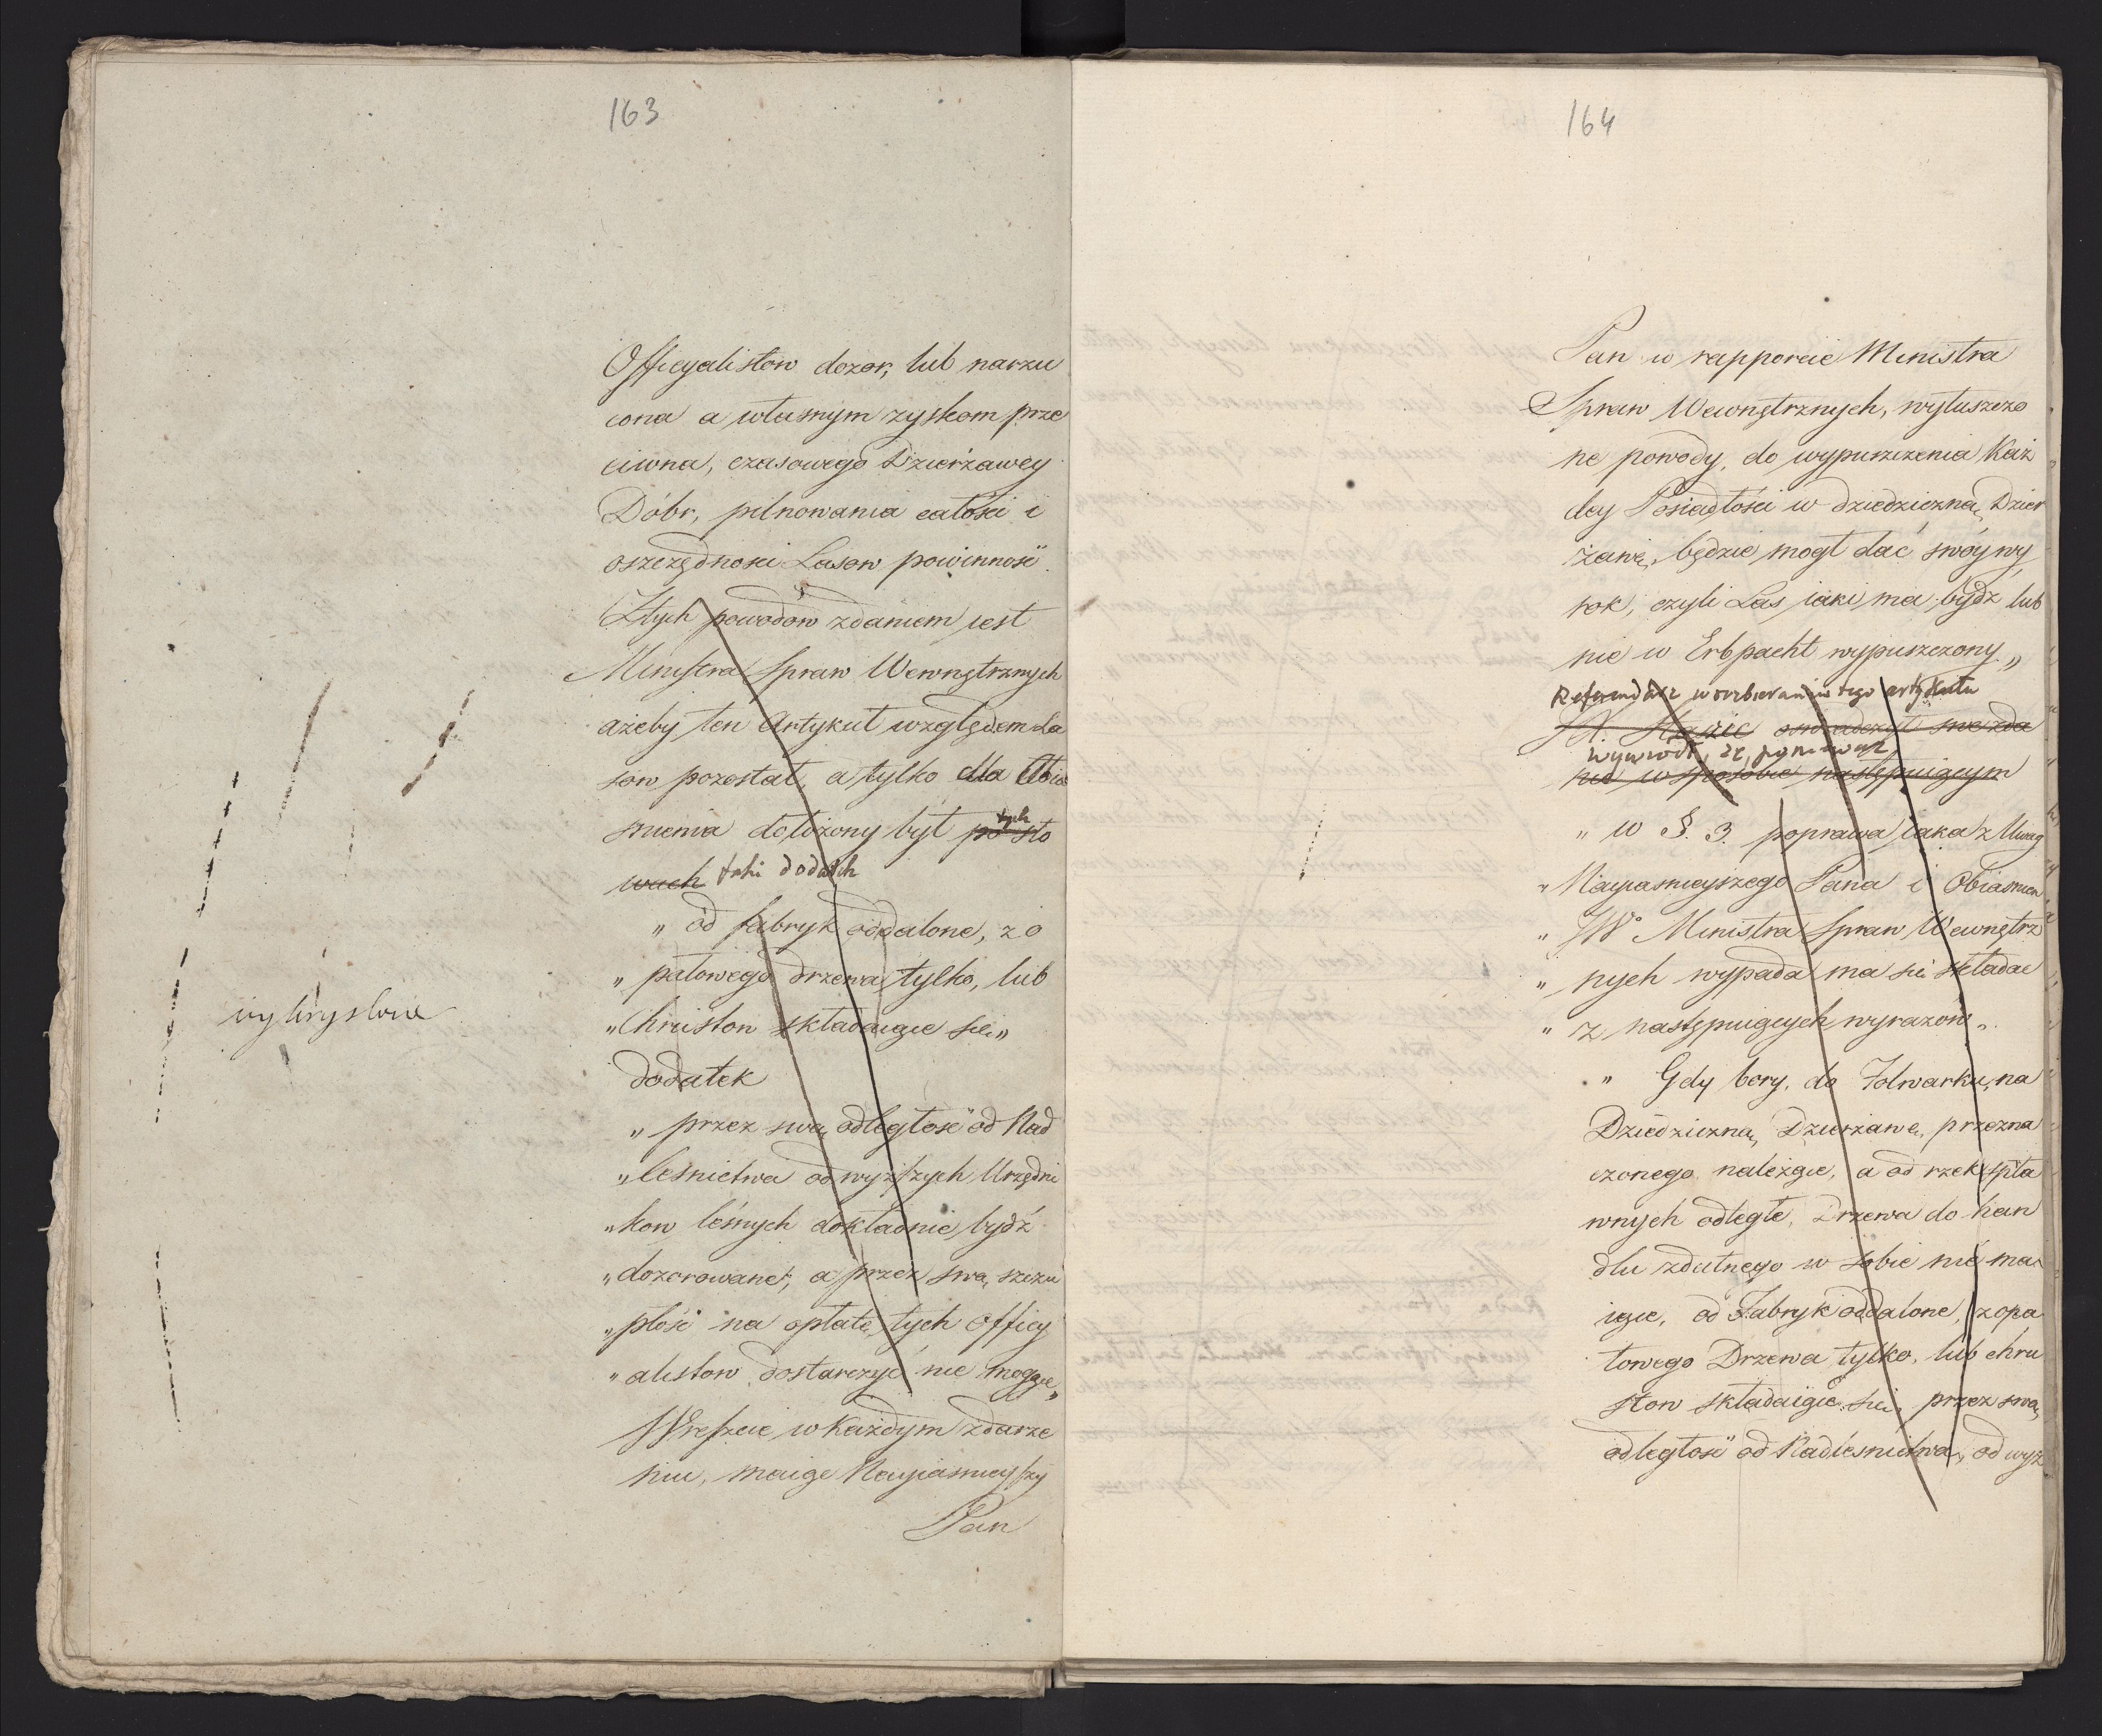 163
Officyalistow dozor, lub narzu
cona a własnym zyskom prze
ciwna, czasowego Dzierżawcy
Dóbr, pilnowania całości i
oszczędnosci Lasow powinność.
Ztych powodów zdaniem jest
Ministra Spraw Wewnętrznych
ażeby ten Artykuł względem La
sow pozostał, a tylko dla Obia
snienia dołożony był po sło
tych
wach taki dodatek
„ od fabryk oddalone, z o
„ pałowego drzewa tylko, lub
„ Chrustow składaiące się „
dodatek
wykryslone
„ przez swą odległość od Nad
„ lesnictwa od wyższych Urzędni
„ kow leśnych dokładnie bydź
„ dozorowane, a przez swą szczu
„ płość na opłatę tych officy
„ alistow dostarczyć nie mogące „
Wreszcie w każdym zdarze
niu, maiąc Nayiasnieyszy
Pan
164
Pan w rapporcie Ministra
Spraw Wewnętrznych, wyłuszczo
ne powody, do wypuszczenia Każ
dey Posiadłości w dziedziczną Dzier
żawę, będzie mogł dać swóy wy
rok, czyli Las iaki ma bydź lub
nie w Erbpacht wypuszczony „
Referendarz w rozbieraniu tego artykułu
JX. Staszic oswiadczył swe zda
wywiodł, że ponieważ
nie w sposobie następuiącym
„ W §. 3. poprawa iaka z Uwag
„ Nayiasnieyszego Pana i Obiasnien
„ JWº Ministra Spraw Wewnętrz
„ nych wypada ma się składać
„ z następuiących wyrazów „
„ Gdy bory, do Folwarku, na
Dziedziczną Dzierżawę, przezna
czonego należące, a od rzek spła
wnych odległe, Drzewa do han
dlu zdatnego w sobie nie ma
iące, od Fabryk oddalone, z opa
łowego Drzewa tylko, lub chru
stow składaiące się, przez swą
odległość od Nadlesnictwa, od wyż